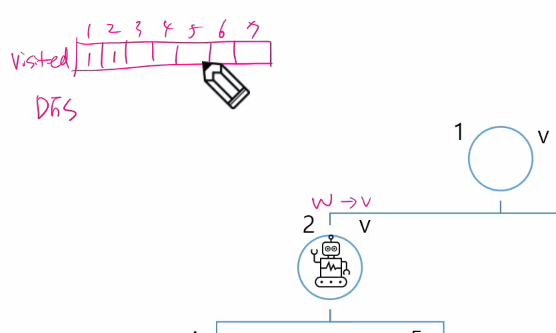 1 2 3 4 5 6 7
Visited 1 1 1
DFS
1 V
W → V
2 V